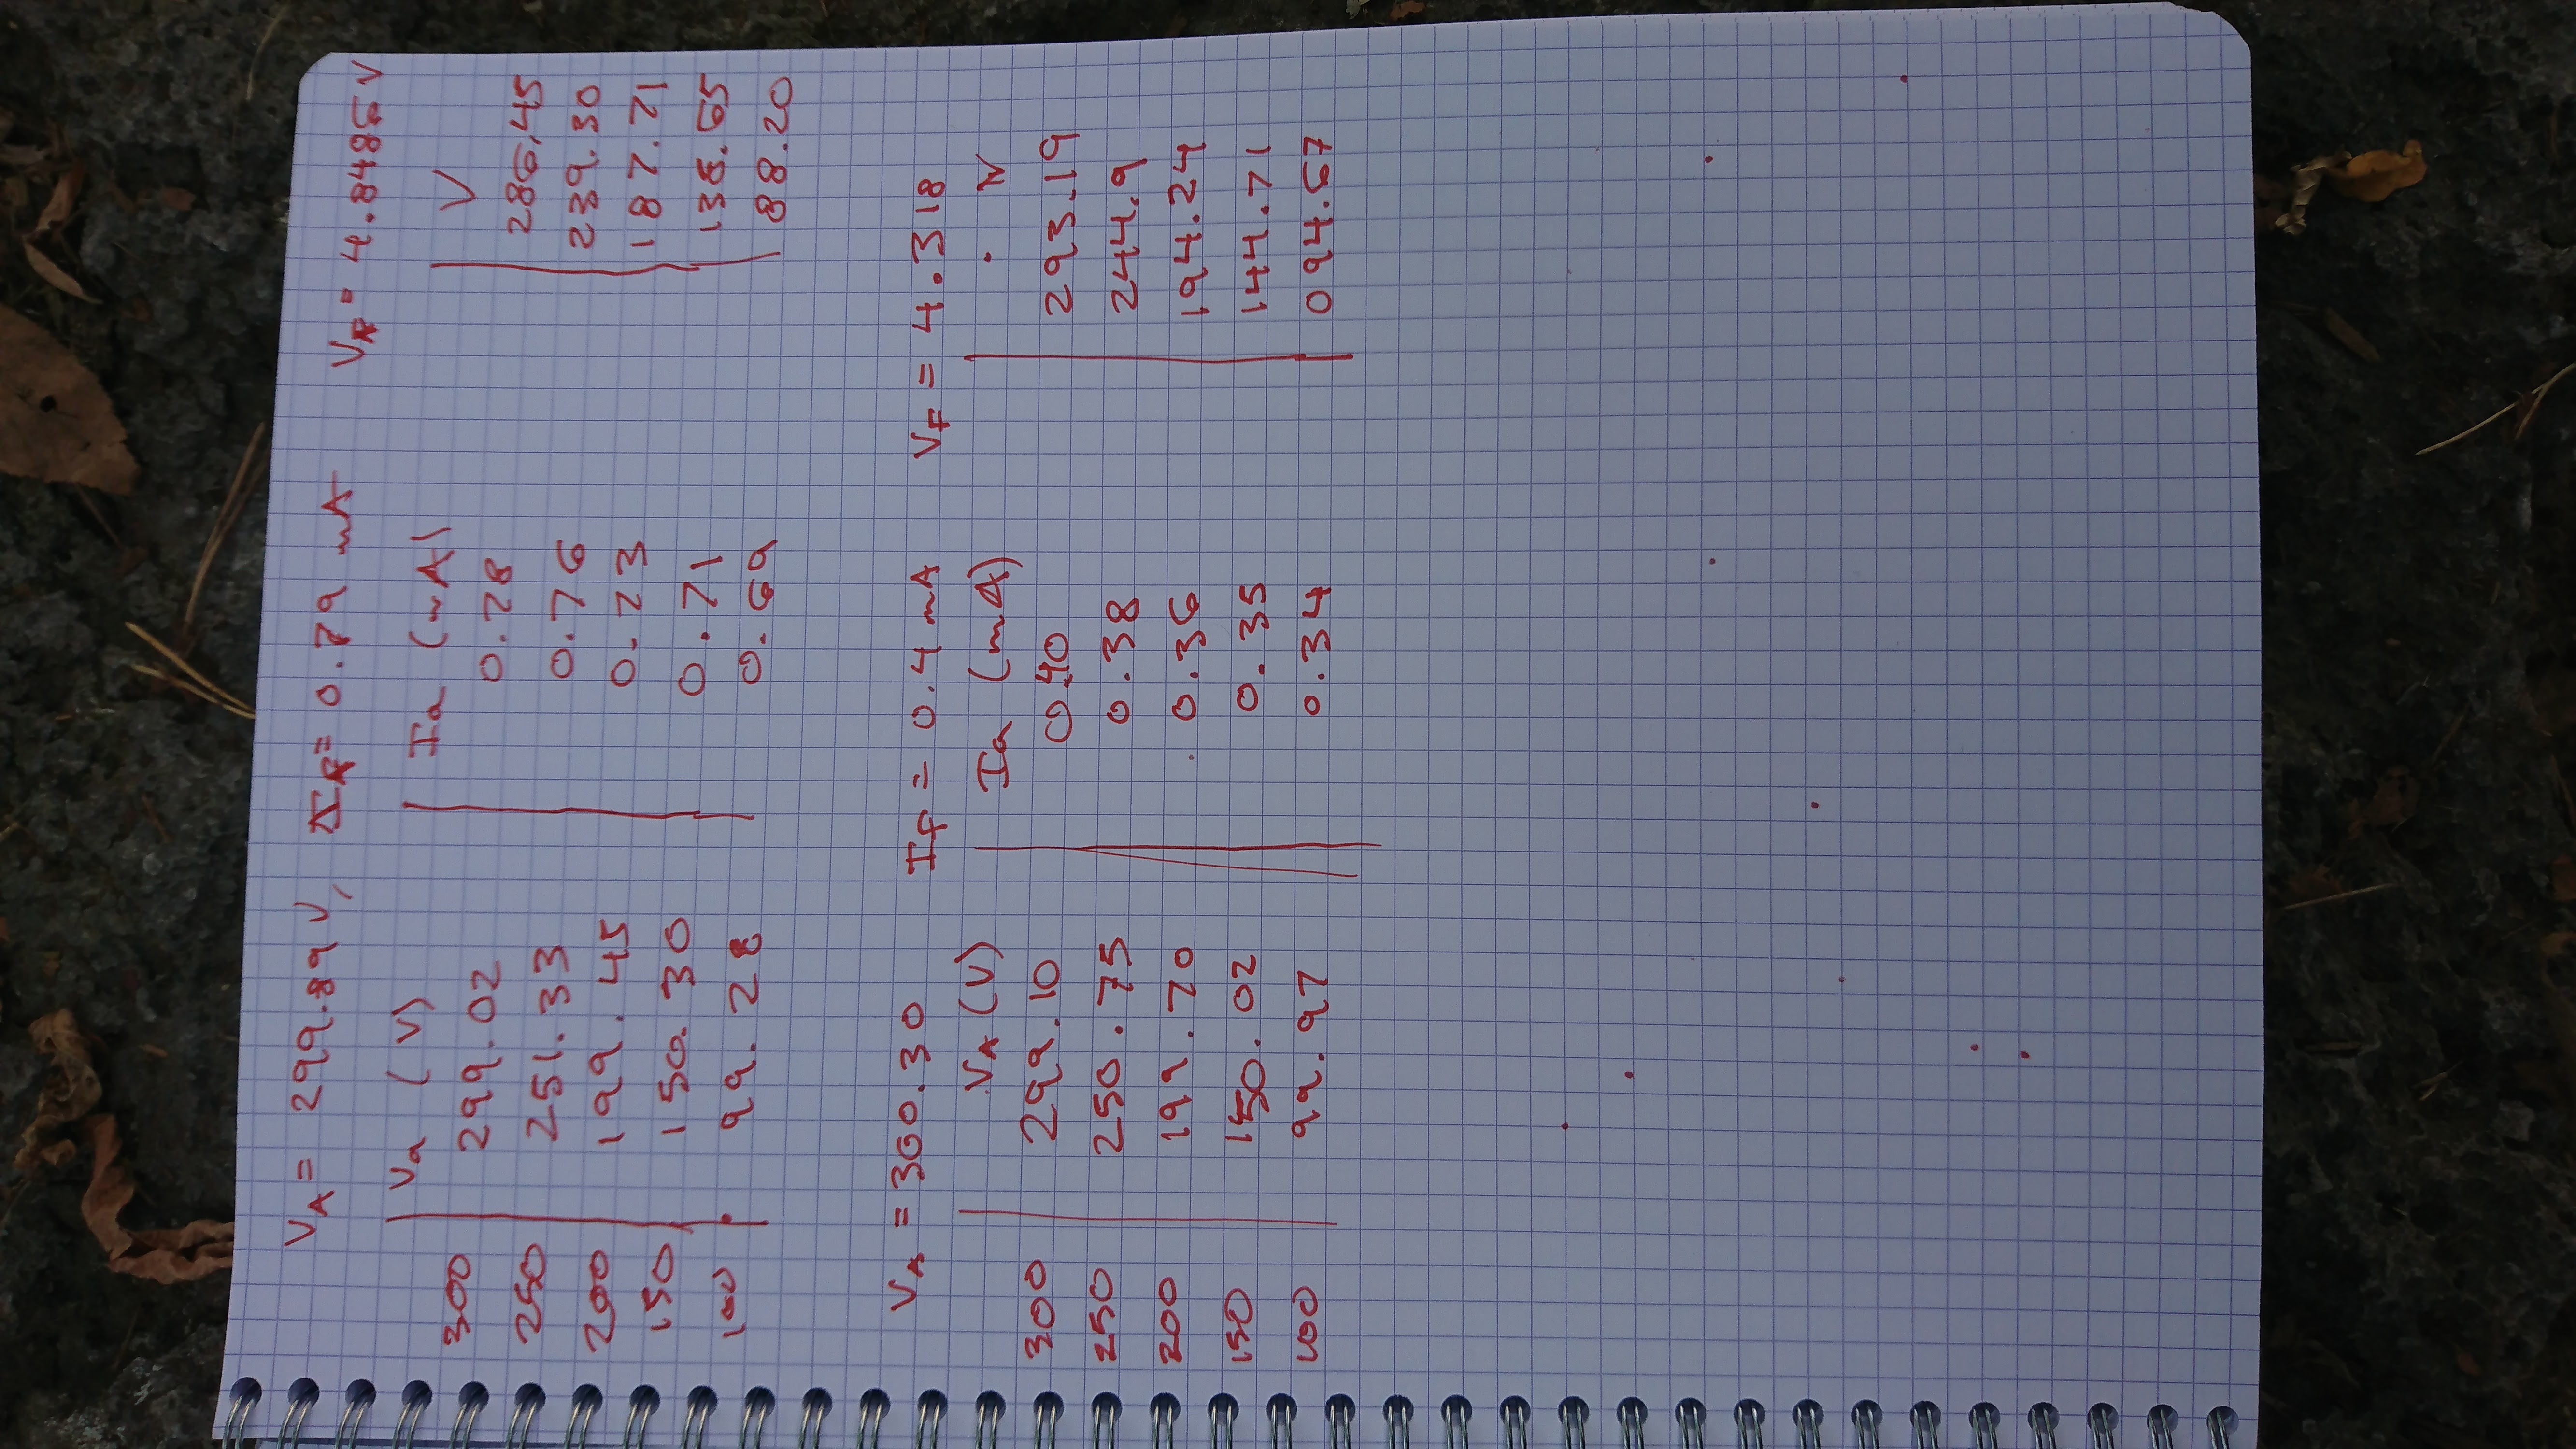 VA = 299.89 V, IF = 0.79 mA VF = 4.8486 V
Va (V) Ia (mA) V
300 299.02 0.78 286.45
250 251.33 0.76 239.30
200 199.45 0.73 187.71
150 150.30 0.71 138.65
100 99.28 0.69 88.20
VA = 300.30 IF = 0.4 mA VF = 4.318
VA (V) Ia (mA) V
300 299.10 0.40 293.19
250 250.75 0.38 244.9
200 199.70 0.36 194.24
150 150.02 0.35 144.71
100 99.97 0.34 094.67